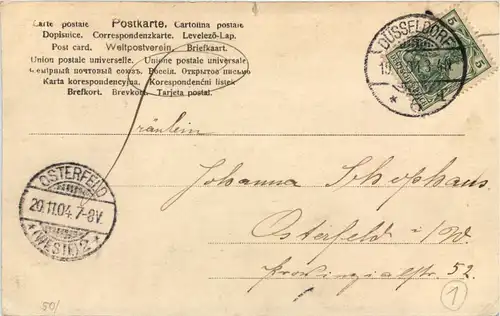 Carte postale Postkarte. Cartolina postale
Dopisnice. Correspondenzkarte. Levelező-Lap.
Post card. Weltpostverein. Briefkaart.
Union postale universelle. Unione postale universale
Всемірный почтовый союзъ. Россія. Открытое письмо
Karta korespondencyjna. Korespondenční listek
Brefkort. Brevkort. Tarjeta postal.
DÜSSELDORF
5
5
Fräulein
Johanna Schophaus
Osterfeld i/W.
Provinzialstr. 52.
OSTERFELD
20.11.04. 7-8V
(WESTF.) 2
50/
1